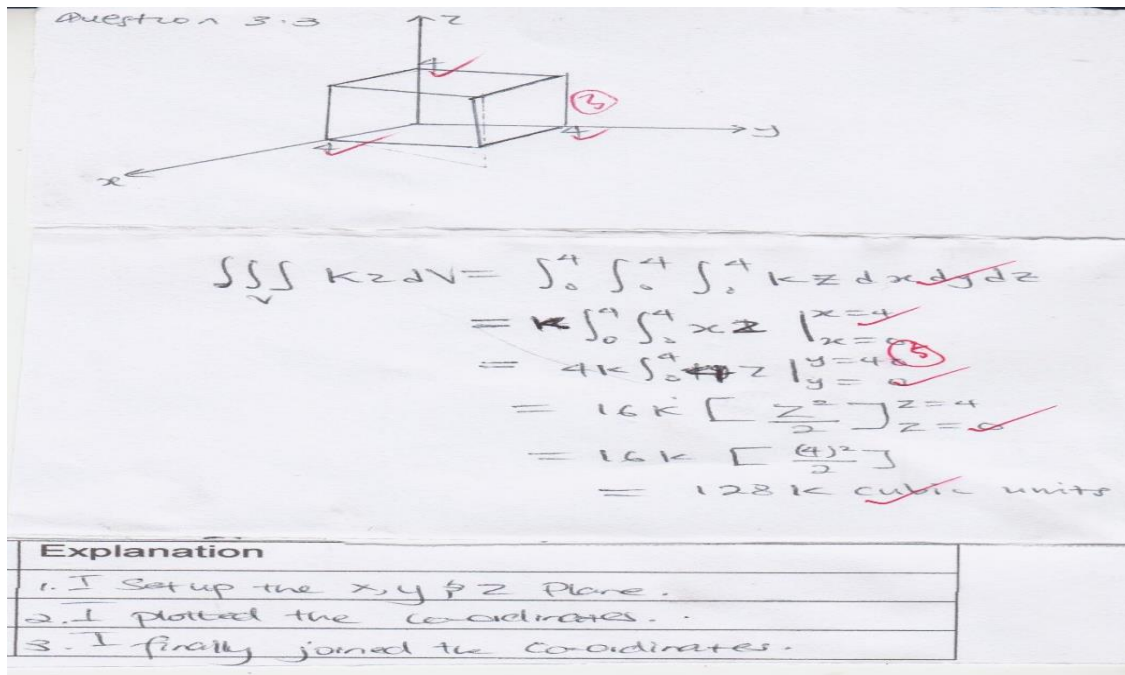 Question 3.3
z
4
③
4
y
4
x
∫∫∫ KzdV = ∫₀⁴ ∫₀⁴ ∫₀⁴ kz dxdydz
V
= K ∫₀⁴ ∫₀⁴ xz |ˣ⁼⁴ₓ₌₀
= 4K ∫₀⁴ z |y=4 y=0
⑤
= 16K [z²/2] z=4 z=0
= 16K [(4)²/2]
= 128K cubic units
Explanation
1. I Set up the x, y & z Plane.
2. I plotted the co-ordinates.
3. I finally joined the co-ordinates.